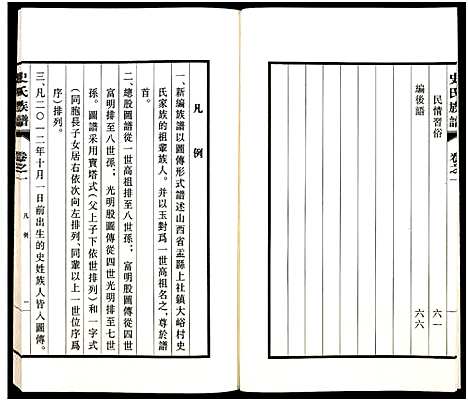 史氏族譜
卷之一
民情習俗
六一
編後語
六六
凡例
一、新編族譜以圖傳形式譜述山西省盂縣上社鎮大峪村史
氏家族的祖輩族人。并以玉對爲一世高祖名之,尊於譜
首。
二、總股圖譜從一世高祖排至八世孫;富明股圖傳從四世
富明排至八世孫;光明股圖傳從四世光明排至七世
孫。圖譜采用寶塔式(父上子下依世排列)和一字式
(同胞長子女居右依次向左排列、同輩以上一世位序爲
序)排列。
三、凡二〇一二年十月一日前出生的史姓族人皆入圖傳。
史氏族譜
卷之一
凡例
一